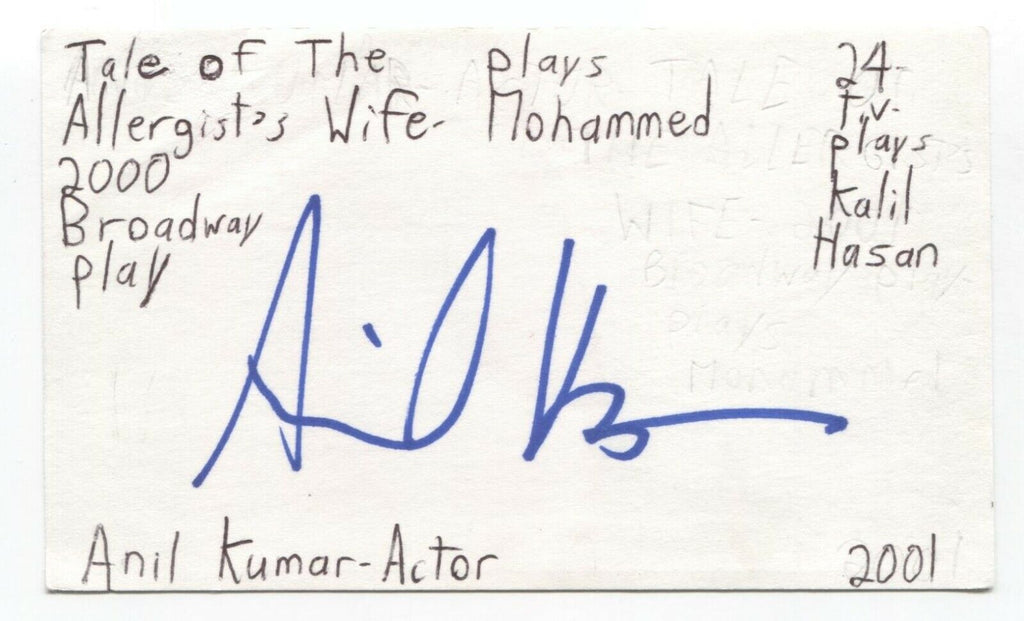 Tale of The plays
Allergist's Wife- Mohammed
2000
Broadway
play
24-
T.v-
plays
Kalil
Hasan
Anil K
Anil Kumar-Actor
2001